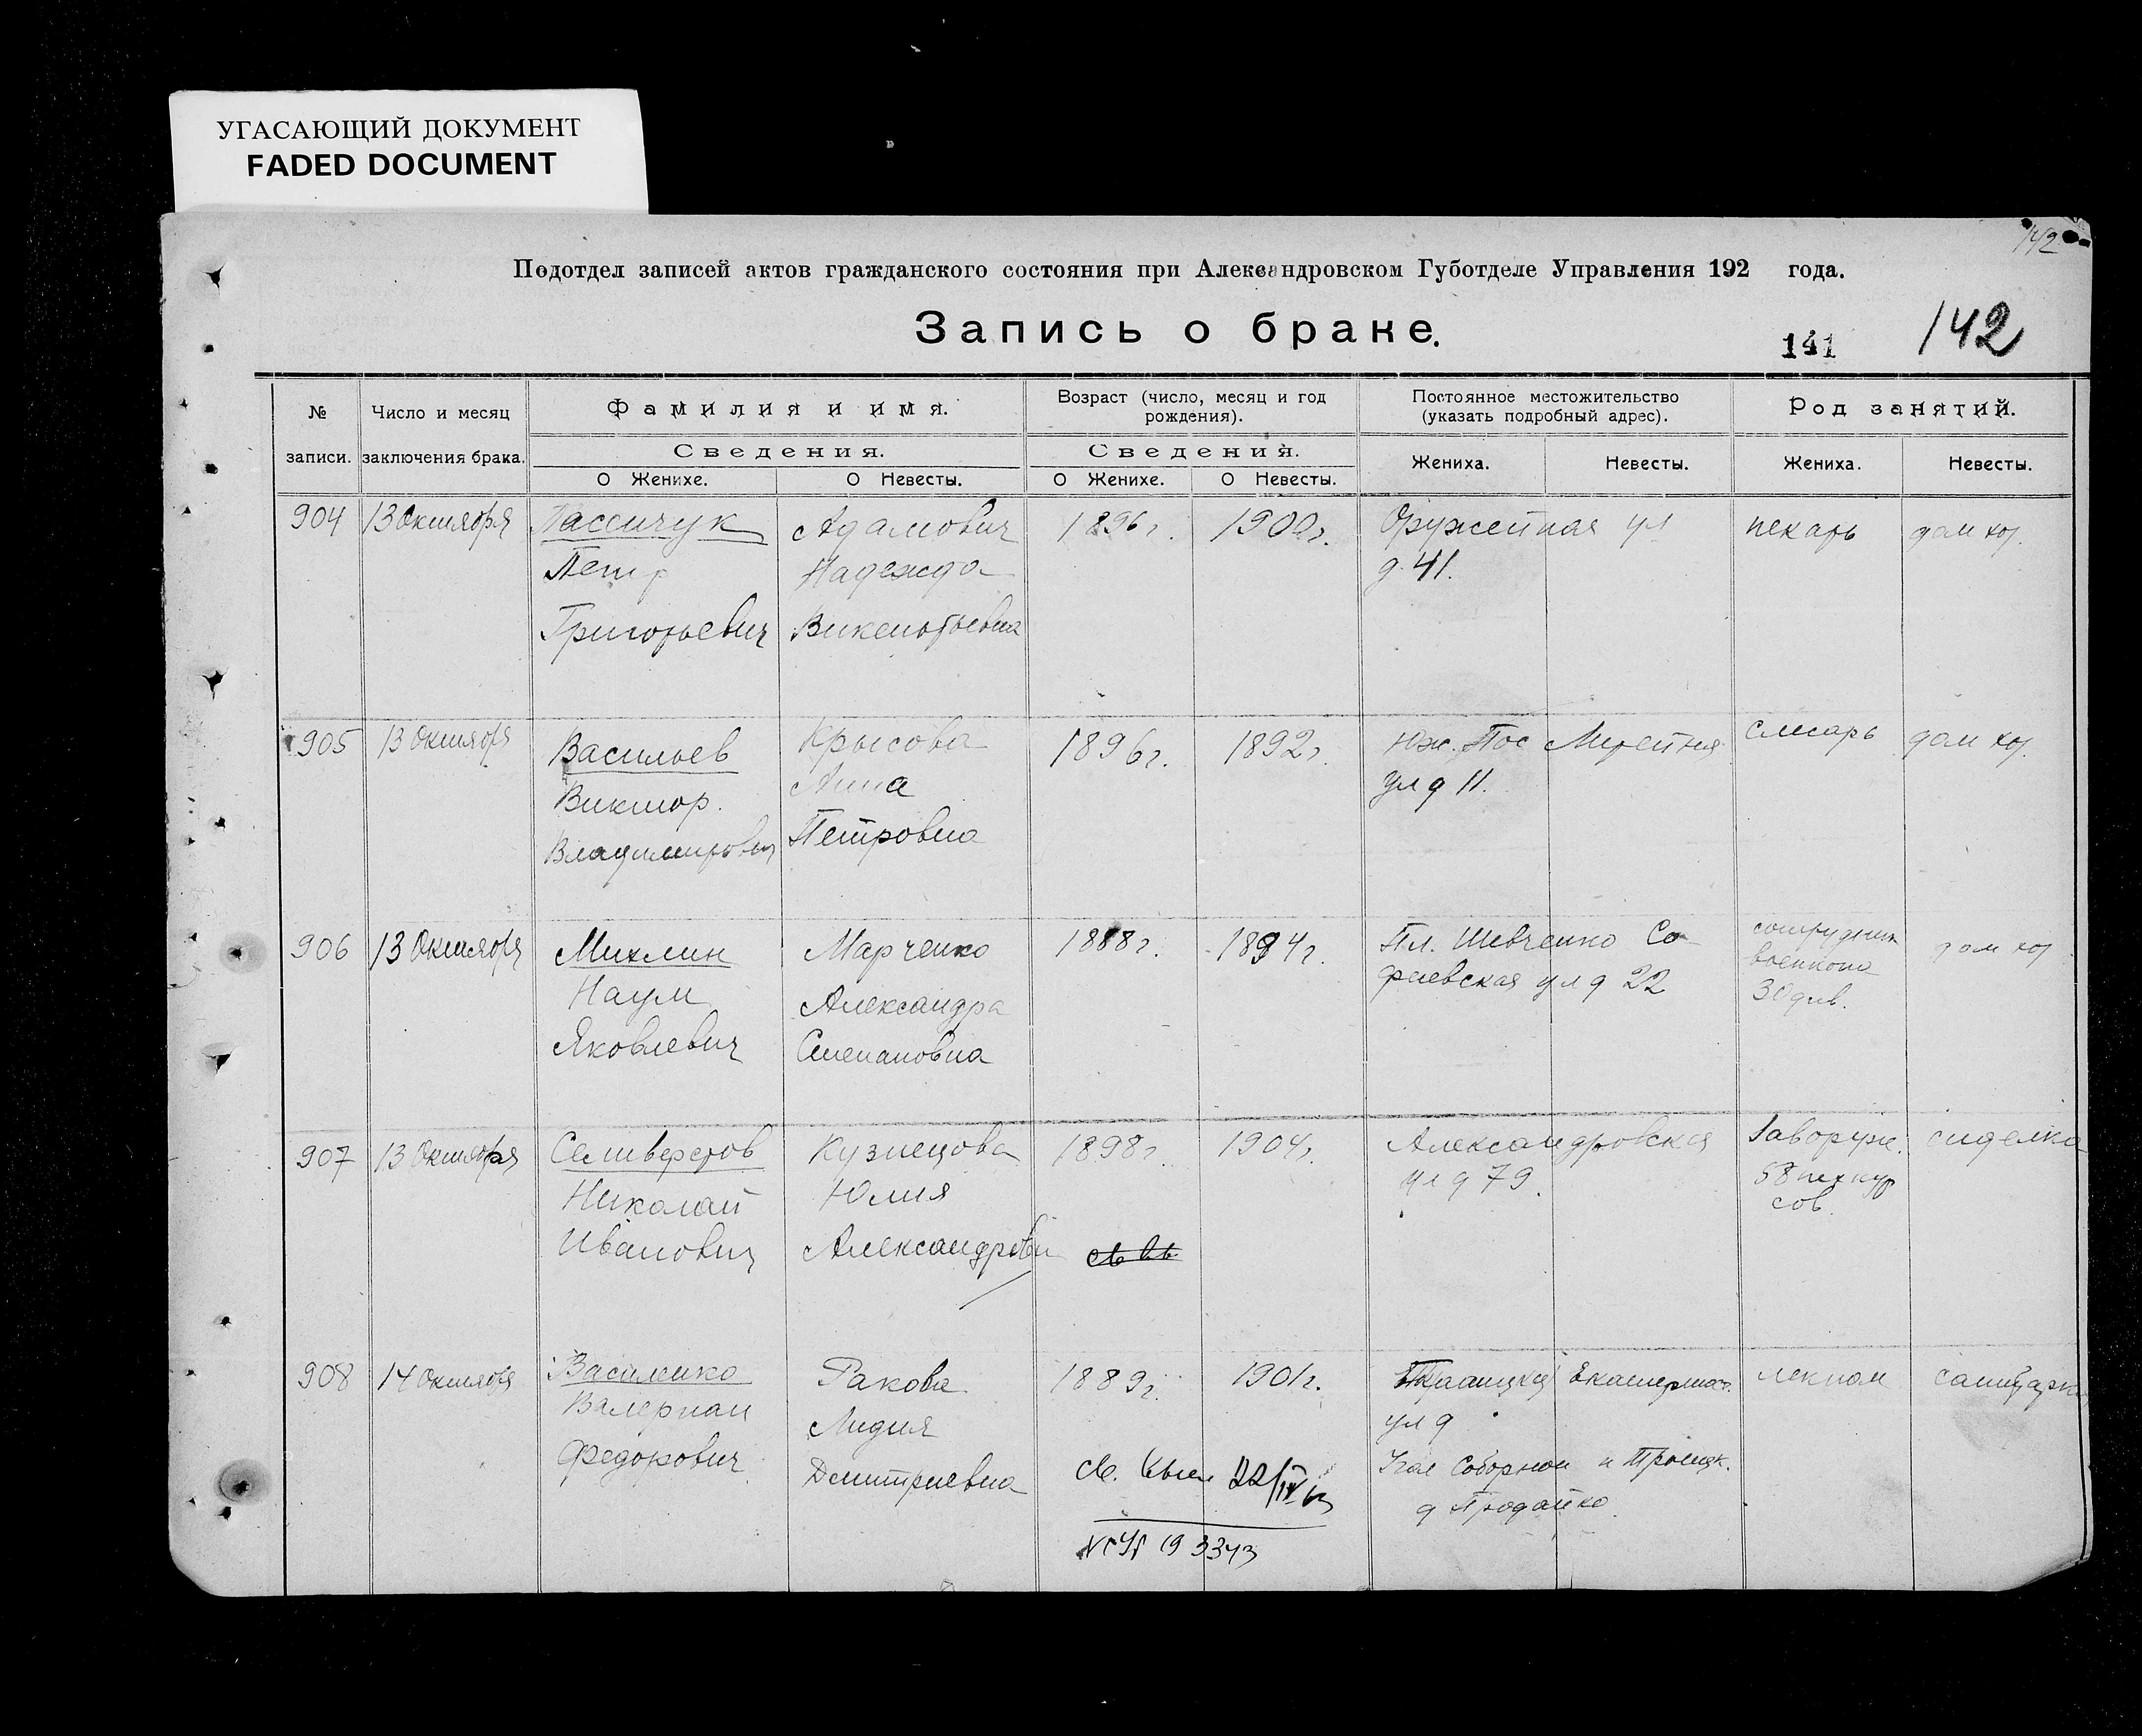 УГАСАЮЩИЙ ДОКУМЕНТ
FADED DOCUMENT
142
Подотдел записей актов гражданского состояния при Александровском Губотделе Управления 192 года.
Запись о браке.
141
142
№ записи.
Число и месяц заключения брака.
Фамилия и имя.
Сведения.
О Женихе.
О Невесты.
Возраст (число, месяц и год рождения).
Сведения.
О Женихе.
О Невесты.
Постоянное местожительство (указать подробный адрес).
Жениха.
Невесты.
Род занятий.
Жениха.
Невесты.
904 13 Октября Пассичук Адамович 1896 г. 1900 г. Оружейная ул пекарь дом хоз.
Петр Надежда д. 41.
Григорьевич Викентьевна
905 13 Октября Васильев Крысова 1896 г. 1892 г. Юж. Пос слесарь дом хоз.
Виктор. Анна ул д 11.
Владимирович Петровна
906 13 Октября Михлин Марченко 1888 г. 1894 г. Пл. Шевченко Со- сотрудник дом хоз
Наум Александра фиевская ул д 22 военкома
Яковлевич Степановна 30 див.
907 13 Октября Селиверстов Кузнецова 1898 г. 1904 г. Александровская Заворуж. сиделка
Николай Юлия ул д 79. 58 пех кур
Иванович Александровн сов.
908 14 Октября Василенко Ракова 1889 г. 1901 г. лекпом санитарк
Валериан Лидия ул д
Федорович Дмитриевна 22/IV Угол Соборной и Троицк.
д